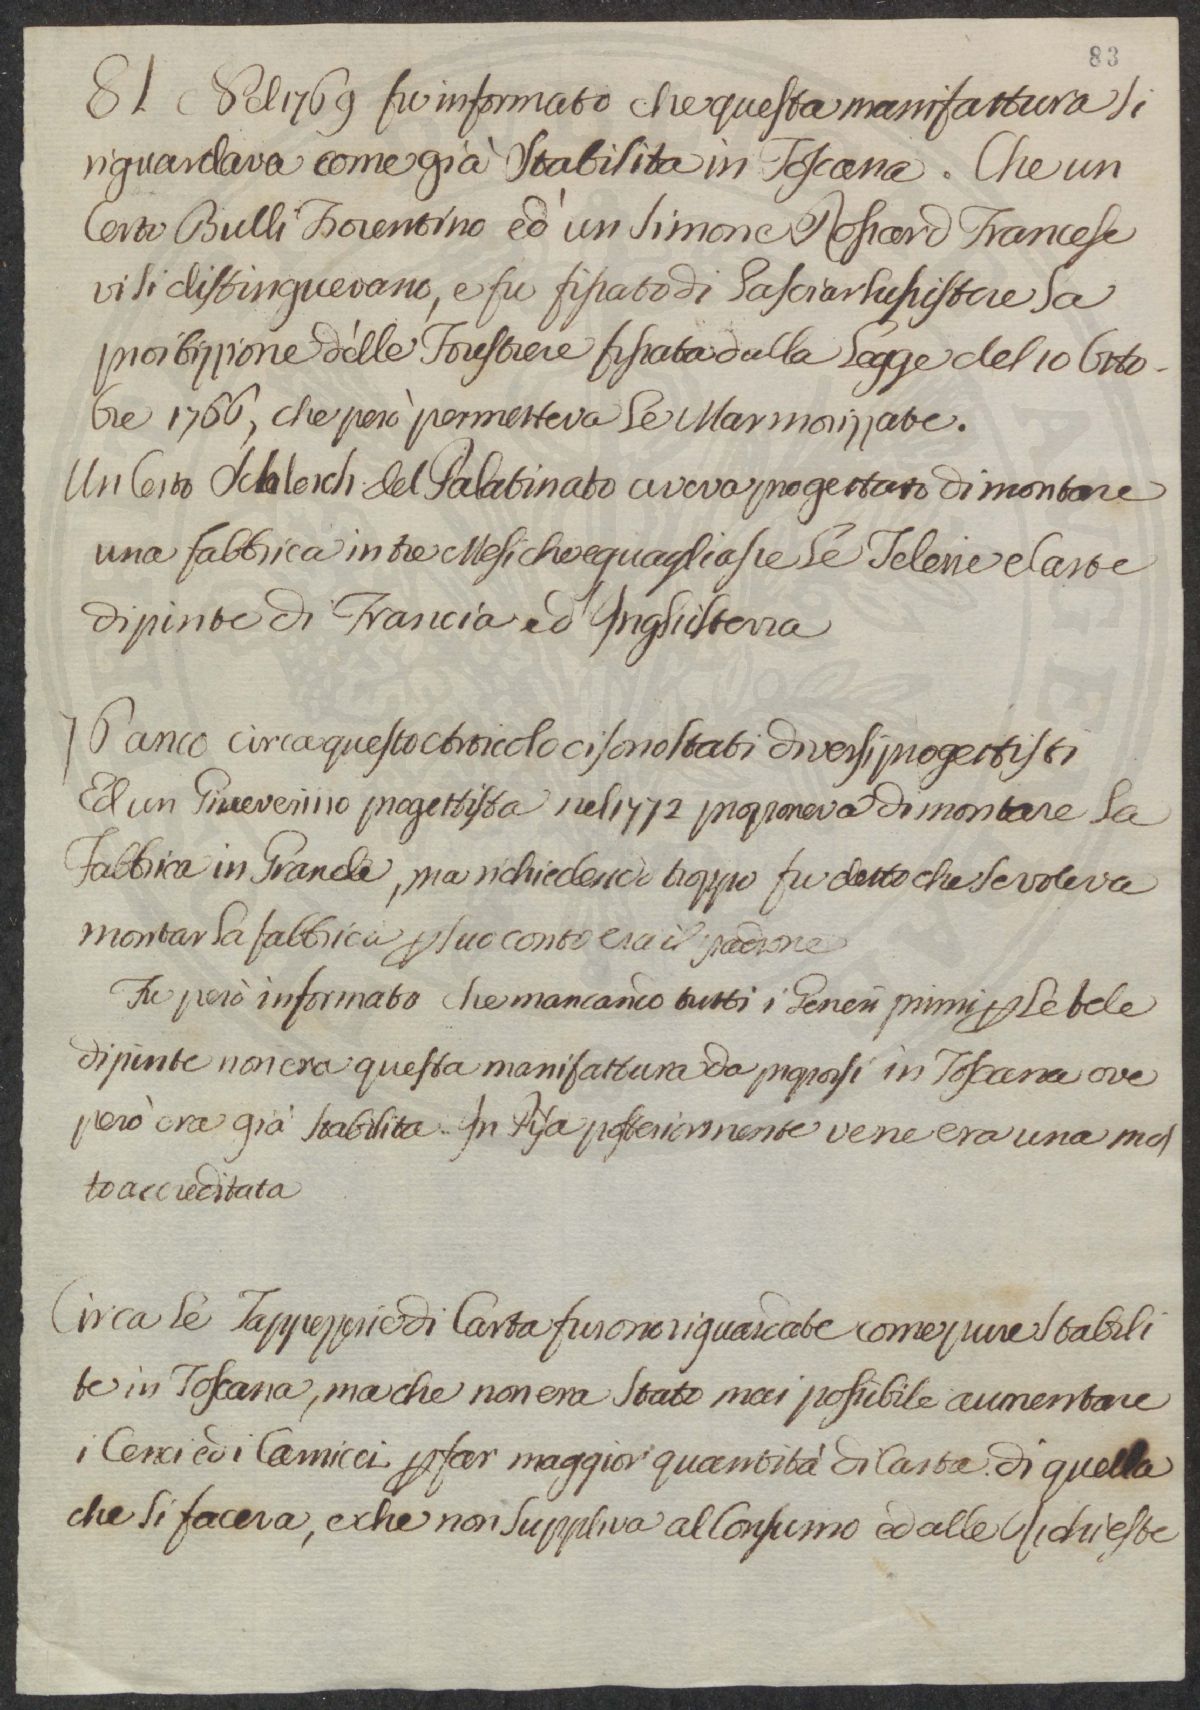 83
81 Nel 1769 fu informato che questa manifattura si
riguardava come già Stabilita in Toscana. Che un
Certo Bulli Fiorentino ed un Simone Rossard Francese
vi si distinguevano, e fu fissato di lasciar sussistere la
proibizzione delle Forestiere fissata dalla Legge del 10 Otto-
bre 1766, che però permetteva le Marmorizzate.
Un Certo del Palatinato aveva progettato di montare
una fabbrica in tre Mesi che eguagliasse le Telerie e Carte
dipinte di Francia ed Inghilterra
76 anco circa questo Articolo ci sono stati diversi progettisti
Ed un Ginevrino progettista nel 1772 proponeva di montare la
Fabbrica in Grande, ma richiedendo troppo fu detto che se voleva
montar la fabbrica p suo conto era il padrone
Fu però informato che mancando tutti i Generi primi p le tele
dipinte non era questa manifattura da proporsi in Toscana ove
però era già stabilita. In Pisa posteriormente ve ne era una mol
to accreditata
Circa le Tappezzerie di Carta furono riguardate come pure Stabili
te in Toscana, ma che non era Stato mai possibile aumentare
i Cenci ed i Carnicci p far maggior quantità di Carta di quella
che si faceva, e che non suppliva al Consumo ed alle Richieste